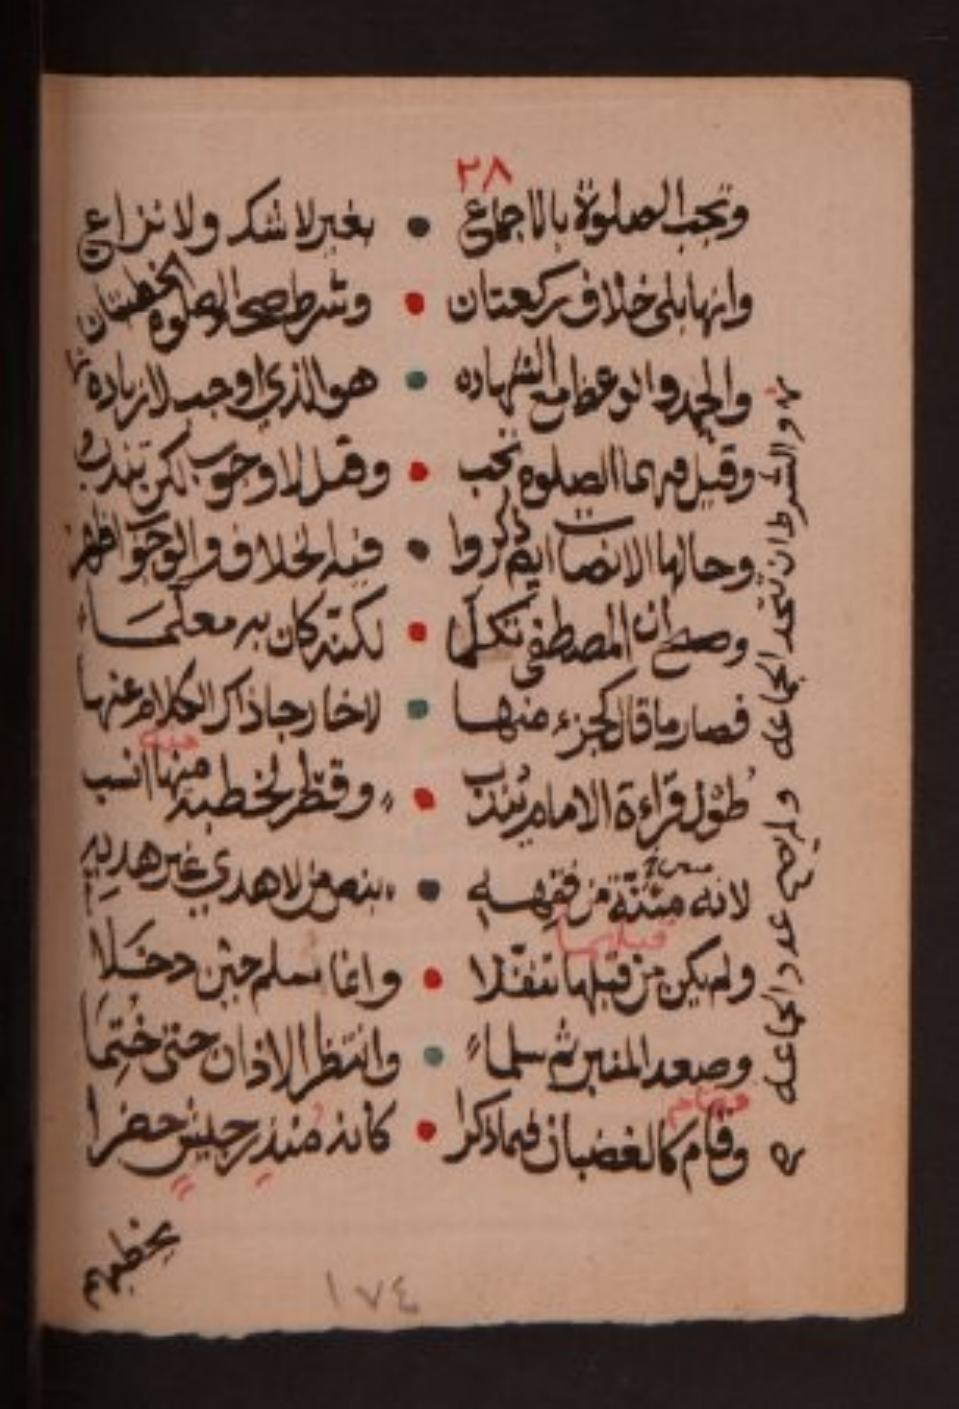 ٢٨
وتجب الصلوة بالاجماع • بغير لا شك ولا نزاع
وانها بلى خلاف ركعتان • وشرط صحة الصلوة الخطبتان
والحمد والوعظ مع الشهاده • هو الذي اوجب لا زياده
وقيل فيهما الصلوة تجب • وقيل لا وجوب لكن تندب
وحالها الانصات ايضا ذكروا • فيه الخلاف والوجوب اظهر
وصح ان المصطفى تكلما • لكنه كان به معلما
فصار ما قال كجزء منها • لا خارجا ذاك الكلام عنها
طول قراءة الامام يندب • وقصر الخطبة منها انسب
لانه مئنة من فقهه • بنص من لا هدي غير هديه
قبلهما
ولم يكن من قبلها تنفلا • وانما سلم حين دخلا
وصعد المنبر ثم سلما • وانتظر الاذان حتى ختما
وقام كالغضبان فيما ذكرا • كانه منذر جيش حضرا
والشرط ان تتحد الجماعه ولم يصح عدد الجماعه
يخطبهم
١٧٤